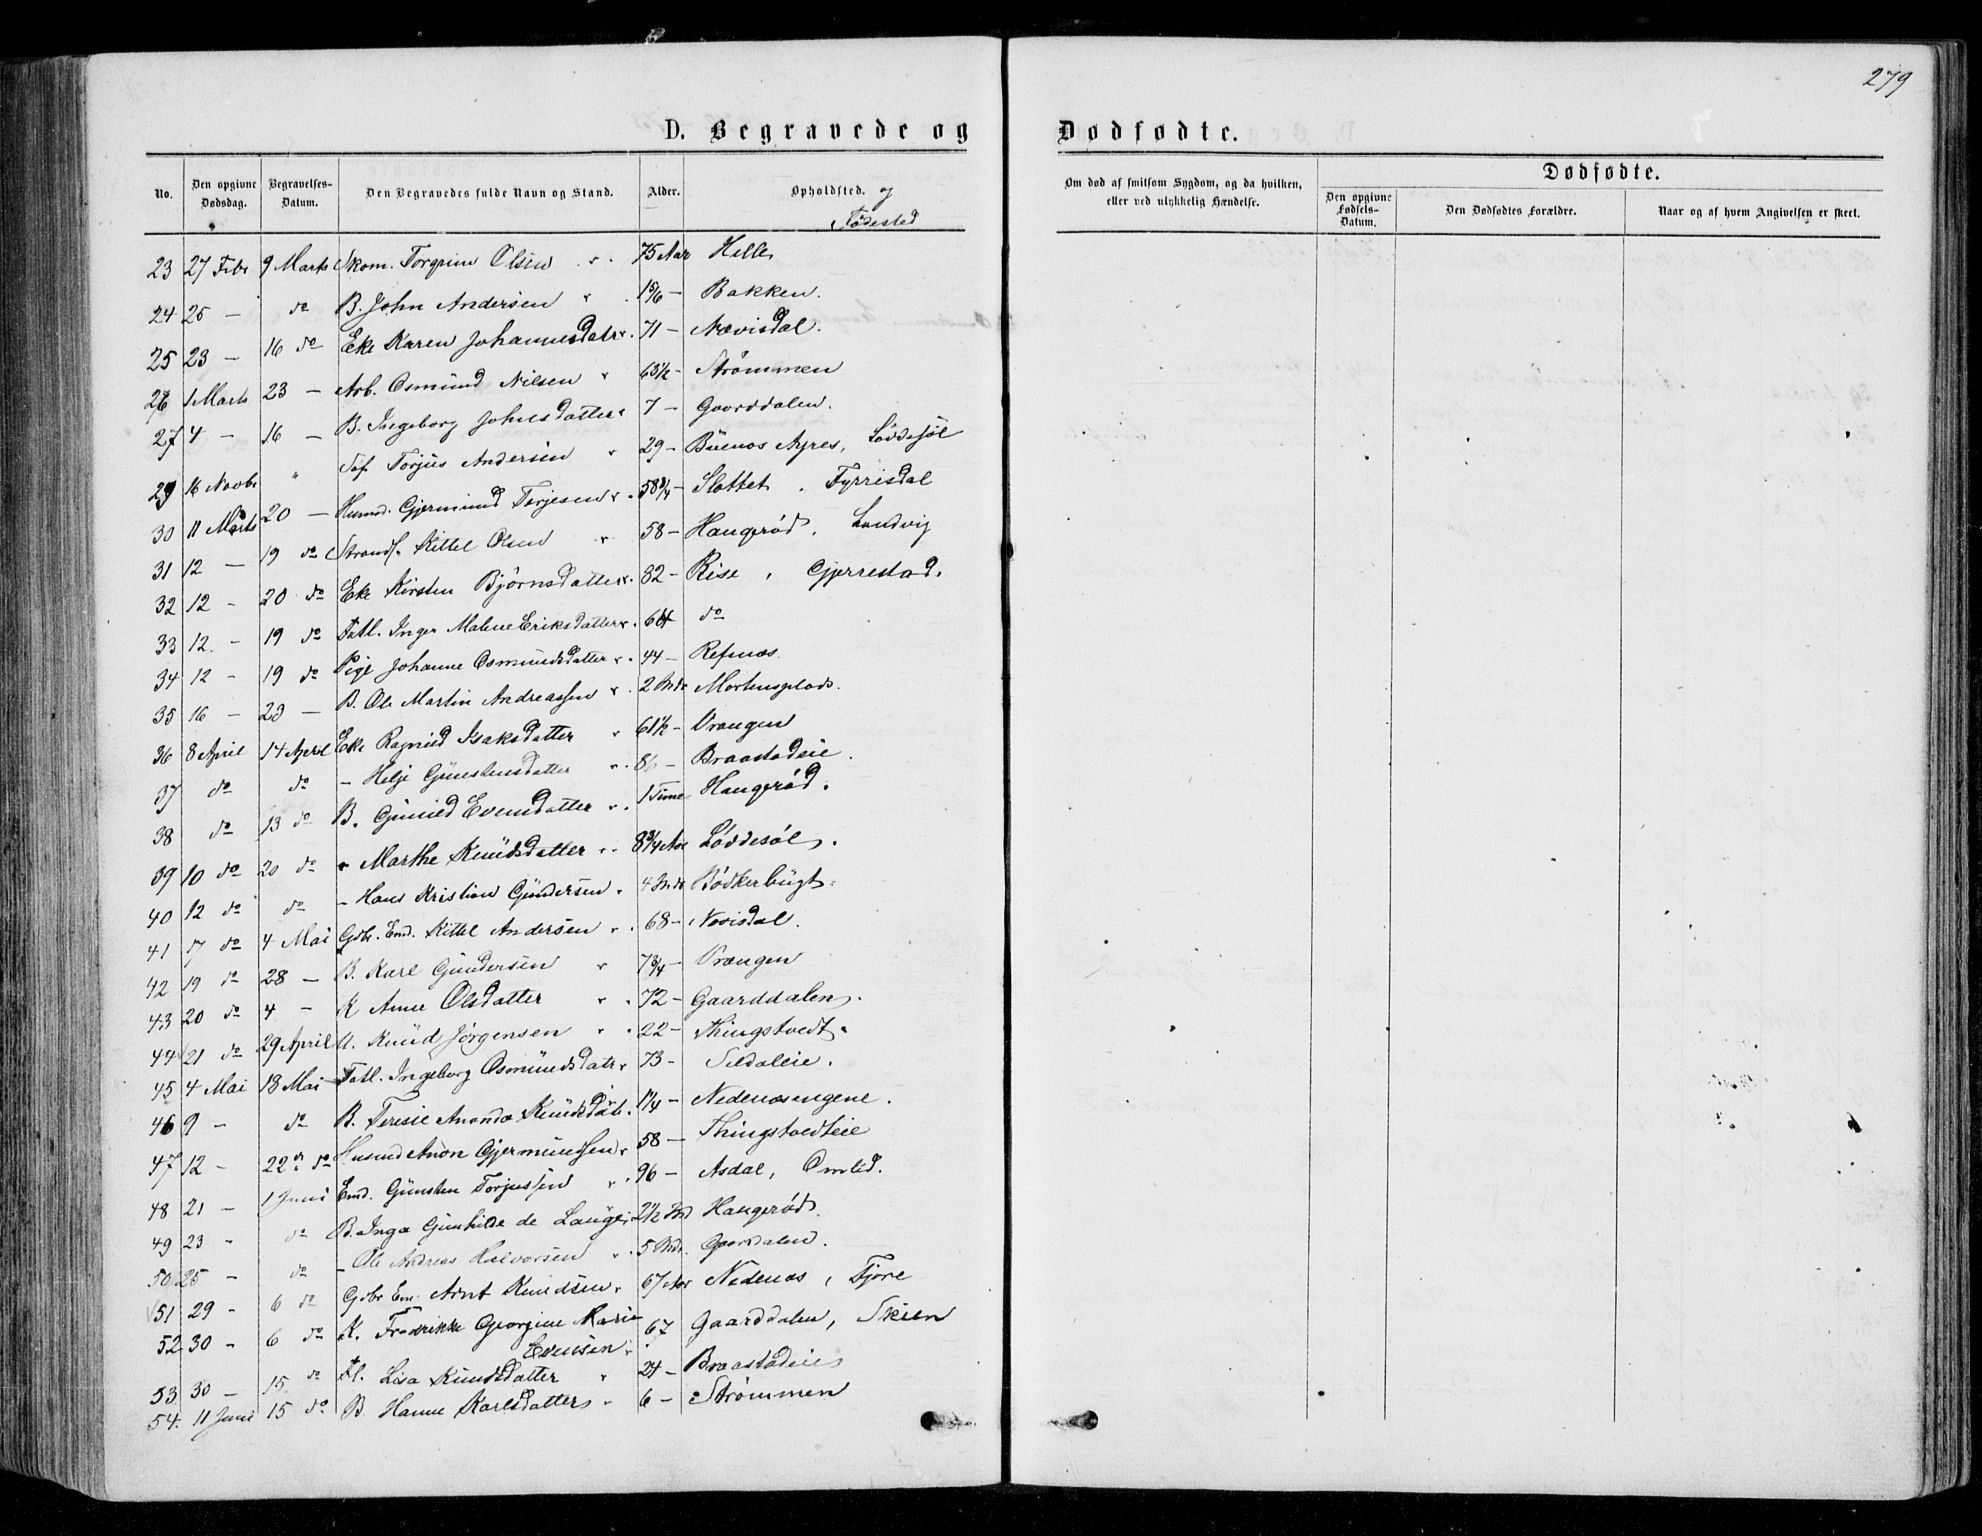 279
D. Begravede og Dødfødte.
No. Den opgivne Dødsdag. Begravelses-Datum. Den Begravedes fulde Navn og Stand. Alder. Opholdsted. og Fødested
Om død af smitsom Sygdom, og da hvilken, eller ved ulykkelig Hændelse. Dødfødte. Den opgivne Fødsels-Datum. Den Dødfødtes Forældre. Naar og af hvem Angivelsen er skeet.
23 27 Febr 9 Marts Skom. Torgrim Olsen 75 Aar Helle
24 25 — do B. John Andersen 1 5/6 — Bakken.
25 23 — 16 do Eke Karen Johannesdatr 71 — Nævisdal.
26 1 Marts 23 — Arb. Osmund Nilsen 63 1/2 — Strømmen
27 4 — 16 — B. Ingeborg Johnsdatter 7 — Gaarddalen.
29 16 Novbr " Søf. Torjus Andersen 29 — Buenos Ayres, Løddesøl
30 11 Marts 20 — Husmd. Gjermund Terjesen 58 3/4 — Slottet, Fyrrisdal
31 12 — 19 do Strands. Kittel Olsen 58 — Haugerød, Landvig
32 12 — 20 do Eke Kirsten Bjørnsdatter 82 — Rise, Gjerrestad.
33 12. — 19 do Fatl. Inger Malene Eriksdatter 64 do
34 12 — 19 do Pige Johanne Osmundsdatter 44 — Refsnæs.
35 16 — 23 — B. Ole Martin Andreassen 2 Mdr Mortensplads.
36 8 April 14 April Eke Ragnild Isaksdatter 61 1/2 — Vrangen
37 do do — Helje Gunstensdatter 86 — Braastadeie.
38 do 13 do B. Gunild Evensdatter 1 Time Haugerød.
39 10 do 20 do — Marthe Knudsdatter 8 3/4 Aar Løddesøl.
40 12 do do — Hans Kristian Gundersen 4 Mdr Bødkerbugt.
41 17 do 4 Mai Gbr. Emd. Kittel Andersen 68 — Nævisdal.
42 19 do 28 — B. Karl Gundersen 7 3/4 — Vrangen
43 20 do 4 — K Anne Olsdatter 72 — Gaarddalen.
44 21 do 29 April U. Knud Jørgensen 22 — Thingstvedt.
45 4 Mai 18 Mai Fatl. Ingeborg Osmundsdatr 73 — Sildaleie.
46 9 — do B. Teresie Ananda Knudsdatr. 1 1/4 — Nedenæsengene.
47 12 — 22 do Husmd Anon Gjermundsen 58 — Thingstvedteie
48 21 — 1 Juni Emd. Gunsten Torjussen 96 — Asdal, Omlid.
49 23 — do B. Inga Gunhilde de Lange 2 1/2 Md Haugerød.
50 25 — do — Ole Andreas Halvorsen 5 Mdr. Gaarddalen.
51 29 — 6 do Gbr Em. Arnt Knudsen 67 Aar Nedenæs, Fjære
52 30 — 6 do K. Fredrikke Georgine Marie Evensen 67 Gaarddalen, Skien
53 30 — 15 do Fl. Lisa Knudsdatter 24 — Braastadeie
54. 11 Juni 15 do B. Hanne Karlsdatter 6 — Strømmen